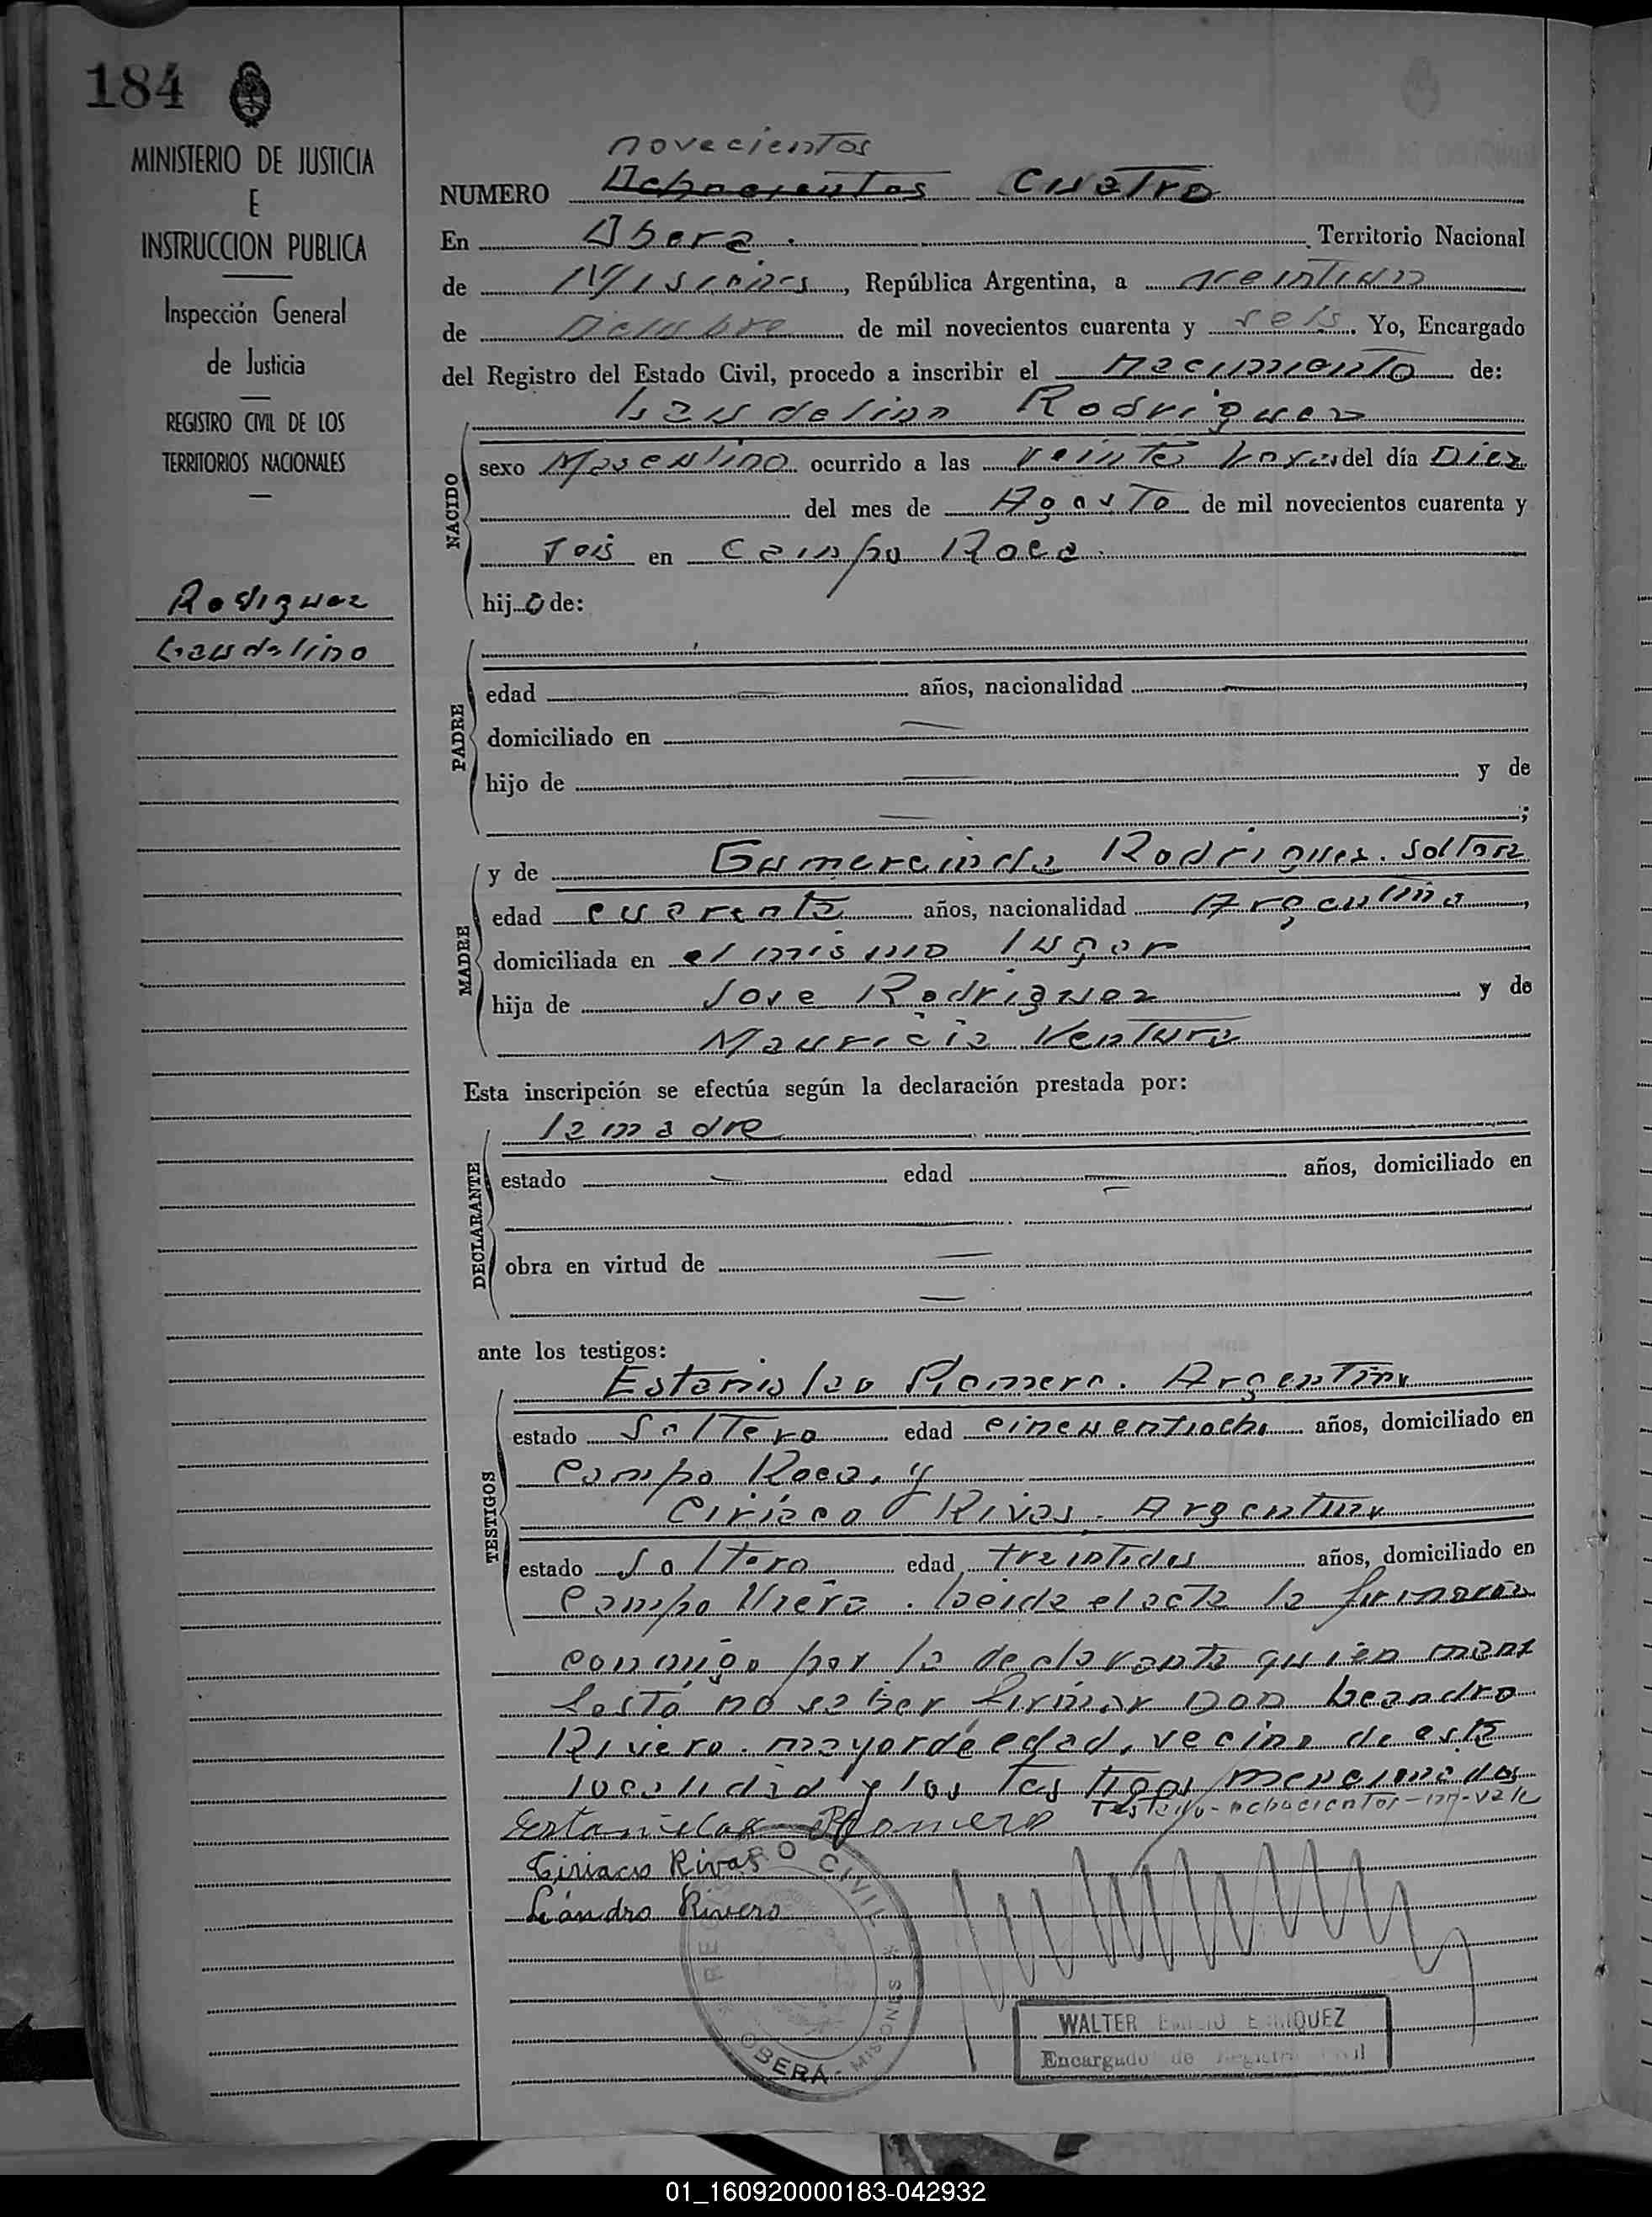 184
MINISTERIO DE JUSTICIA
E
INSTRUCCION PUBLICA
Inspección General
de Justicia
REGISTRO CIVIL DE LOS
TERRITORIOS NACIONALES
Rodriguez
Laudelino
novecientos
NUMERO Ochocientos Cuatro
En Obera. Territorio Nacional
de Misiones, República Argentina, a treintiun
de de mil novecientos cuarenta y seis. Yo, Encargado
del Registro del Estado Civil, procedo a inscribir el Nacimiento de:
Laudelino Rodriguez
NACIDO
sexo Masculino ocurrido a las veinte horas del día Diez
del mes de Agosto de mil novecientos cuarenta y
seis en Campo Roca.
hijo de:
PADRE
edad años, nacionalidad ,
domiciliado en
hijo de y de
;
MADRE
y de Gumercinda Rodriguez. soltera
edad cuarenta años, nacionalidad Argentina,
domiciliada en el mismo lugar
hija de Jose Rodriguez y de
Mauricia Ventura
Esta inscripción se efectúa según la declaración prestada por:
DECLARANTE
la madre
estado edad años, domiciliado en
obra en virtud de
ante los testigos:
TESTIGOS
Estanislao Romero. Argentino
estado Soltero edad cincuentiocho años, domiciliado en
Campo Roca. y
Ciriaco Rivas. Argentino
estado Soltero edad treintidos años, domiciliado en
Campo Viera. Leida el acta la firmaron
conmigo por la declarante quien mani
festó no saber firmar Don Leandro
Rivero. mayor de edad, vecino de esta
localidad y los testigos mencionados
Testado-ochocientos-no-vale
Estanislao Romero
Ciriaco Rivas
Leandro Rivero
REGISTRO CIVIL
OBERA - MISIONES
WALTER
Encargado de Registro Civil
01_160920000183-042932